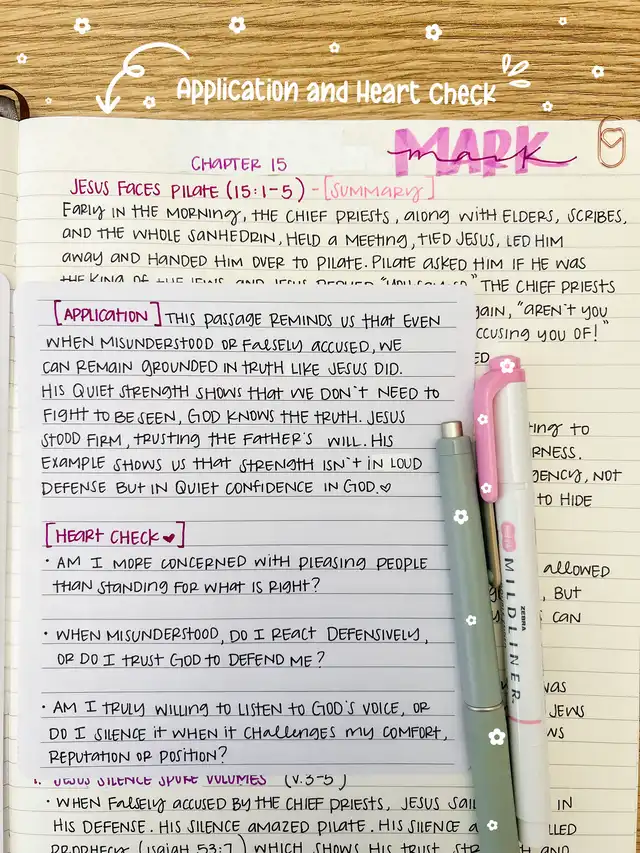 Application and Heart Check
MARK
mark
CHAPTER 15
JESUS FACES PILATE (15:1-5) - [SUMMARY]
EARLY IN THE MORNING, THE CHIEF PRIESTS, ALONG WITH ELDERS, SCRIBES,
AND THE WHOLE SANHEDRIN, HELD A MEETING, TIED JESUS, LED HIM
AWAY AND HANDED HIM OVER TO PILATE. PILATE ASKED HIM IF HE WAS
THE KING OF THE JEWS AND JESUS REPLIED "YOU SAY SO." THE CHIEF PRIESTS
"AREN'T YOU
ACCUSING YOU OF!"
[APPLICATION] THIS PASSAGE REMINDS US THAT EVEN
WHEN MISUNDERSTOOD OR FALSELY ACCUSED, WE
CAN REMAIN GROUNDED IN TRUTH LIKE JESUS DID.
HIS QUIET STRENGTH SHOWS THAT WE DON'T NEED TO
FIGHT TO BE SEEN, GOD KNOWS THE TRUTH. JESUS
STOOD FIRM, TRUSTING THE FATHER'S WILL. HIS
EXAMPLE SHOWS US THAT STRENGTH ISN'T IN LOUD
DEFENSE BUT IN QUIET CONFIDENCE IN GOD.♡
[HEART CHECK ♥]
• AM I MORE CONCERNED WITH PLEASING PEOPLE
THAN STANDING FOR WHAT IS RIGHT?
• WHEN MISUNDERSTOOD, DO I REACT DEFENSIVELY,
OR DO I TRUST GOD TO DEFEND ME?
• AM I TRULY WILLING TO LISTEN TO GOD'S VOICE, OR
DO I SILENCE IT WHEN IT CHALLENGES MY COMFORT,
REPUTATION OR POSITION?
TO
NOT
TO HIDE
ALLOWED
BUT
CAN
JEWS
ZEBRA
MILDLINER
1. JESUS SILENCE SPOKE VOLUMES (V.3-5)
• WHEN FALSELY ACCUSED BY THE CHIEF PRIESTS, JESUS SAID IN
HIS DEFENSE. HIS SILENCE AMAZED PILATE. HIS SILENCE
PROPHECY (ISAIAH 53:7) WHICH SHOWS HIS TRUST, AND